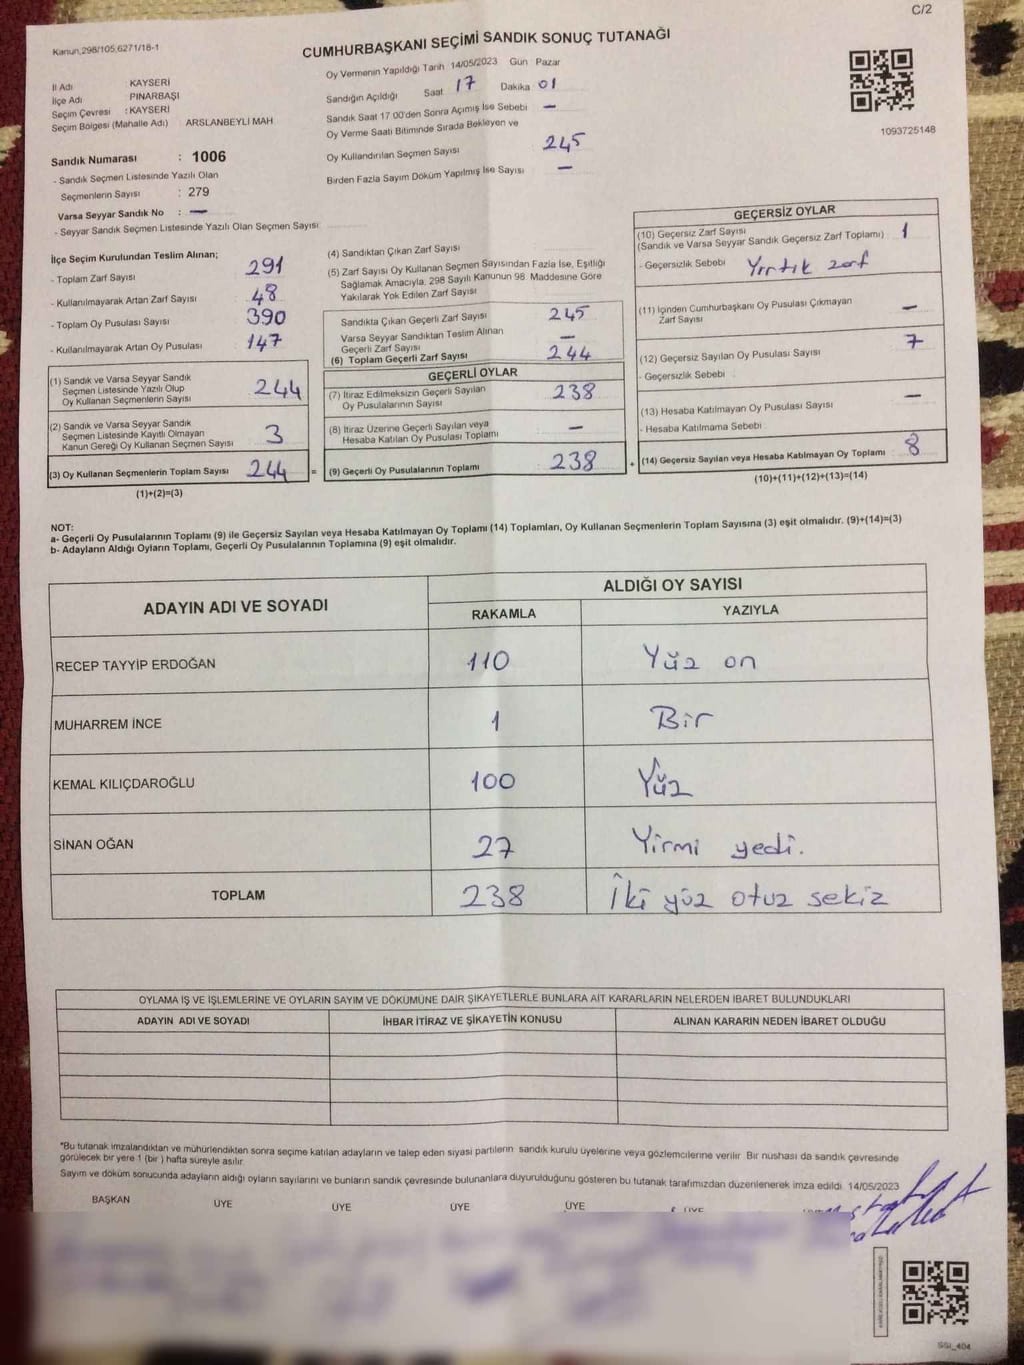 C/2
Kanun,298/105,6271/18-1
CUMHURBAŞKANI SEÇİMİ SANDIK SONUÇ TUTANAĞI
İl Adı KAYSERİ
İlçe Adı PINARBAŞI
Seçim Çevresi : KAYSERİ
Seçim Bölgesi (Mahalle Adı) ARSLANBEYLİ MAH
Oy Vermenin Yapıldığı Tarih 14/05/2023 Gün Pazar
Sandığın Açıldığı Saat 17 Dakika 01
Sandık Saat 17 00'den Sonra Açımış İse Sebebi –
Oy Verme Saati Bitiminde Sırada Bekleyen ve
Oy Kullandırılan Seçmen Sayısı 245
Birden Fazla Sayım Döküm Yapılmış İse Sayısı –
1093725148
Sandık Numarası : 1006
- Sandık Seçmen Listesinde Yazılı Olan
Seçmenlerin Sayısı : 279
Varsa Seyyar Sandık No : –
- Seyyar Sandık Seçmen Listesinde Yazılı Olan Seçmen Sayısı
İlçe Seçim Kurulundan Teslim Alınan;
- Toplam Zarf Sayısı 291
- Kullanılmayarak Artan Zarf Sayısı 48
- Toplam Oy Pusulası Sayısı 390
- Kullanılmayarak Artan Oy Pusulası 147
(1) Sandık ve Varsa Seyyar Sandık
Seçmen Listesinde Yazılı Olup
Oy Kullanan Seçmenlerin Sayısı 244
(2) Sandık ve Varsa Seyyar Sandık
Seçmen Listesinde Kayıtlı Olmayan
Kanun Gereği Oy Kullanan Seçmen Sayısı 3
(3) Oy Kullanan Seçmenlerin Toplam Sayısı 244 =
(1)+(2)=(3)
(4) Sandıktan Çıkan Zarf Sayısı
(5) Zarf Sayısı Oy Kullanan Seçmen Sayısından Fazla İse, Eşitliği
Sağlamak Amacıyla, 298 Sayılı Kanunun 98. Maddesine Göre
Yakılarak Yok Edilen Zarf Sayısı
Sandıkta Çıkan Geçerli Zarf Sayısı 245
Varsa Seyyar Sandıktan Teslim Alınan
Geçerli Zarf Sayısı –
(6) Toplam Geçerli Zarf Sayısı 244
GEÇERLİ OYLAR
(7) İtiraz Edilmeksizin Geçerli Sayılan
Oy Pusulalarının Sayısı 238
(8) İtiraz Üzerine Geçerli Sayılan veya
Hesaba Katılan Oy Pusulası Toplamı –
(9) Geçerli Oy Pusulalarının Toplamı 238 +
GEÇERSİZ OYLAR
(10) Geçersiz Zarf Sayısı
(Sandık ve Varsa Seyyar Sandık Geçersiz Zarf Toplamı) 1
- Geçersizlik Sebebi Yırtık zarf
(11) İçinden Cumhurbaşkanı Oy Pusulası Çıkmayan
Zarf Sayısı –
(12) Geçersiz Sayılan Oy Pusulası Sayısı 7
- Geçersizlik Sebebi
(13) Hesaba Katılmayan Oy Pusulası Sayısı –
- Hesaba Katılmama Sebebi
(14) Geçersiz Sayılan veya Hesaba Katılmayan Oy Toplamı 8
(10)+(11)+(12)+(13)=(14)
NOT:
a- Geçerli Oy Pusulalarının Toplamı (9) ile Geçersiz Sayılan veya Hesaba Katılmayan Oy Toplamı (14) Toplamları, Oy Kullanan Seçmenlerin Toplam Sayısına (3) eşit olmalıdır. (9)+(14)=(3)
b- Adayların Aldığı Oyların Toplamı, Geçerli Oy Pusulalarının Toplamına (9) eşit olmalıdır.
ADAYIN ADI VE SOYADI ALDIĞI OY SAYISI
RAKAMLA YAZIYLA
RECEP TAYYİP ERDOĞAN 110 Yüz on
MUHARREM İNCE 1 Bir
KEMAL KILIÇDAROĞLU 100 Yüz
SİNAN OĞAN 27 Yirmi yedi.
TOPLAM 238 İki yüz otuz sekiz
OYLAMA İŞ VE İŞLEMLERİNE VE OYLARIN SAYIM VE DÖKÜMÜNE DAİR ŞİKAYETLERLE BUNLARA AİT KARARLARIN NELERDEN İBARET BULUNDUKLARI
ADAYIN ADI VE SOYADI İHBAR İTİRAZ VE ŞİKAYETİN KONUSU ALINAN KARARIN NEDEN İBARET OLDUĞU
*Bu tutanak imzalandıktan ve mühürlendikten sonra seçime katılan adayların ve talep eden siyasi partilerin sandık kurulu üyelerine veya gözlemcilerine verilir. Bir nushası da sandık çevresinde
görülecek bir yere 1 (bir ) hafta süreyle asılır.
Sayım ve döküm sonucunda adayların aldığı oyların sayılarını ve bunların sandık çevresinde bulunanlara duyurulduğunu gösteren bu tutanak tarafımızdan düzenlenerek imza edildi. 14/05/2023
BAŞKAN ÜYE ÜYE ÜYE ÜYE
SSI_404